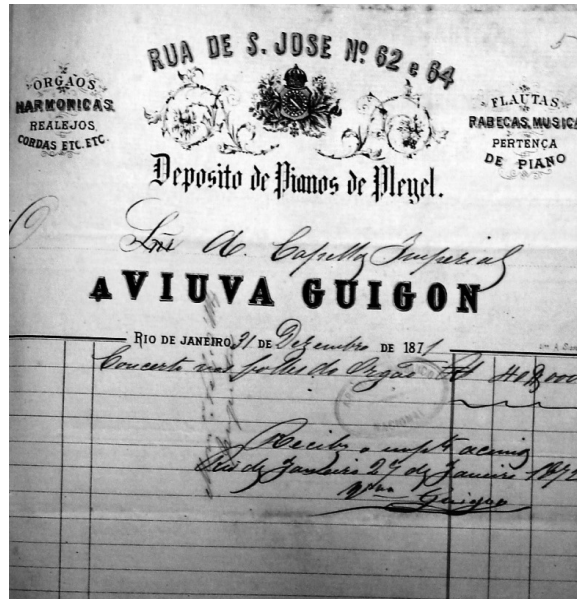 RUA DE S. JOSE Nº 62 e 64
ORGAOS
HARMONICAS
REALEJOS
CORDAS ETC. ETC.
FLAUTAS
RABECAS, MUSICA
PERTENÇA
DE PIANO
Deposito de Pianos de Pleyel.
A Capella Imperial
A VIUVA GUIGON
RIO DE JANEIRO, 31 DE Dezembro DE 1871
Concerto nos folles do Orgão
Recibi o acima
Rio de Janeiro 27 de Janeiro 187
Guigon